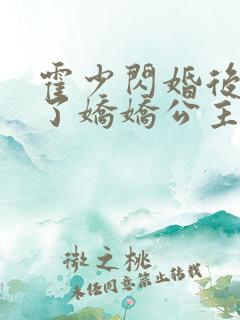 霍少閃婚後
了嬌嬌公主
微之桃
未经同意禁止转载